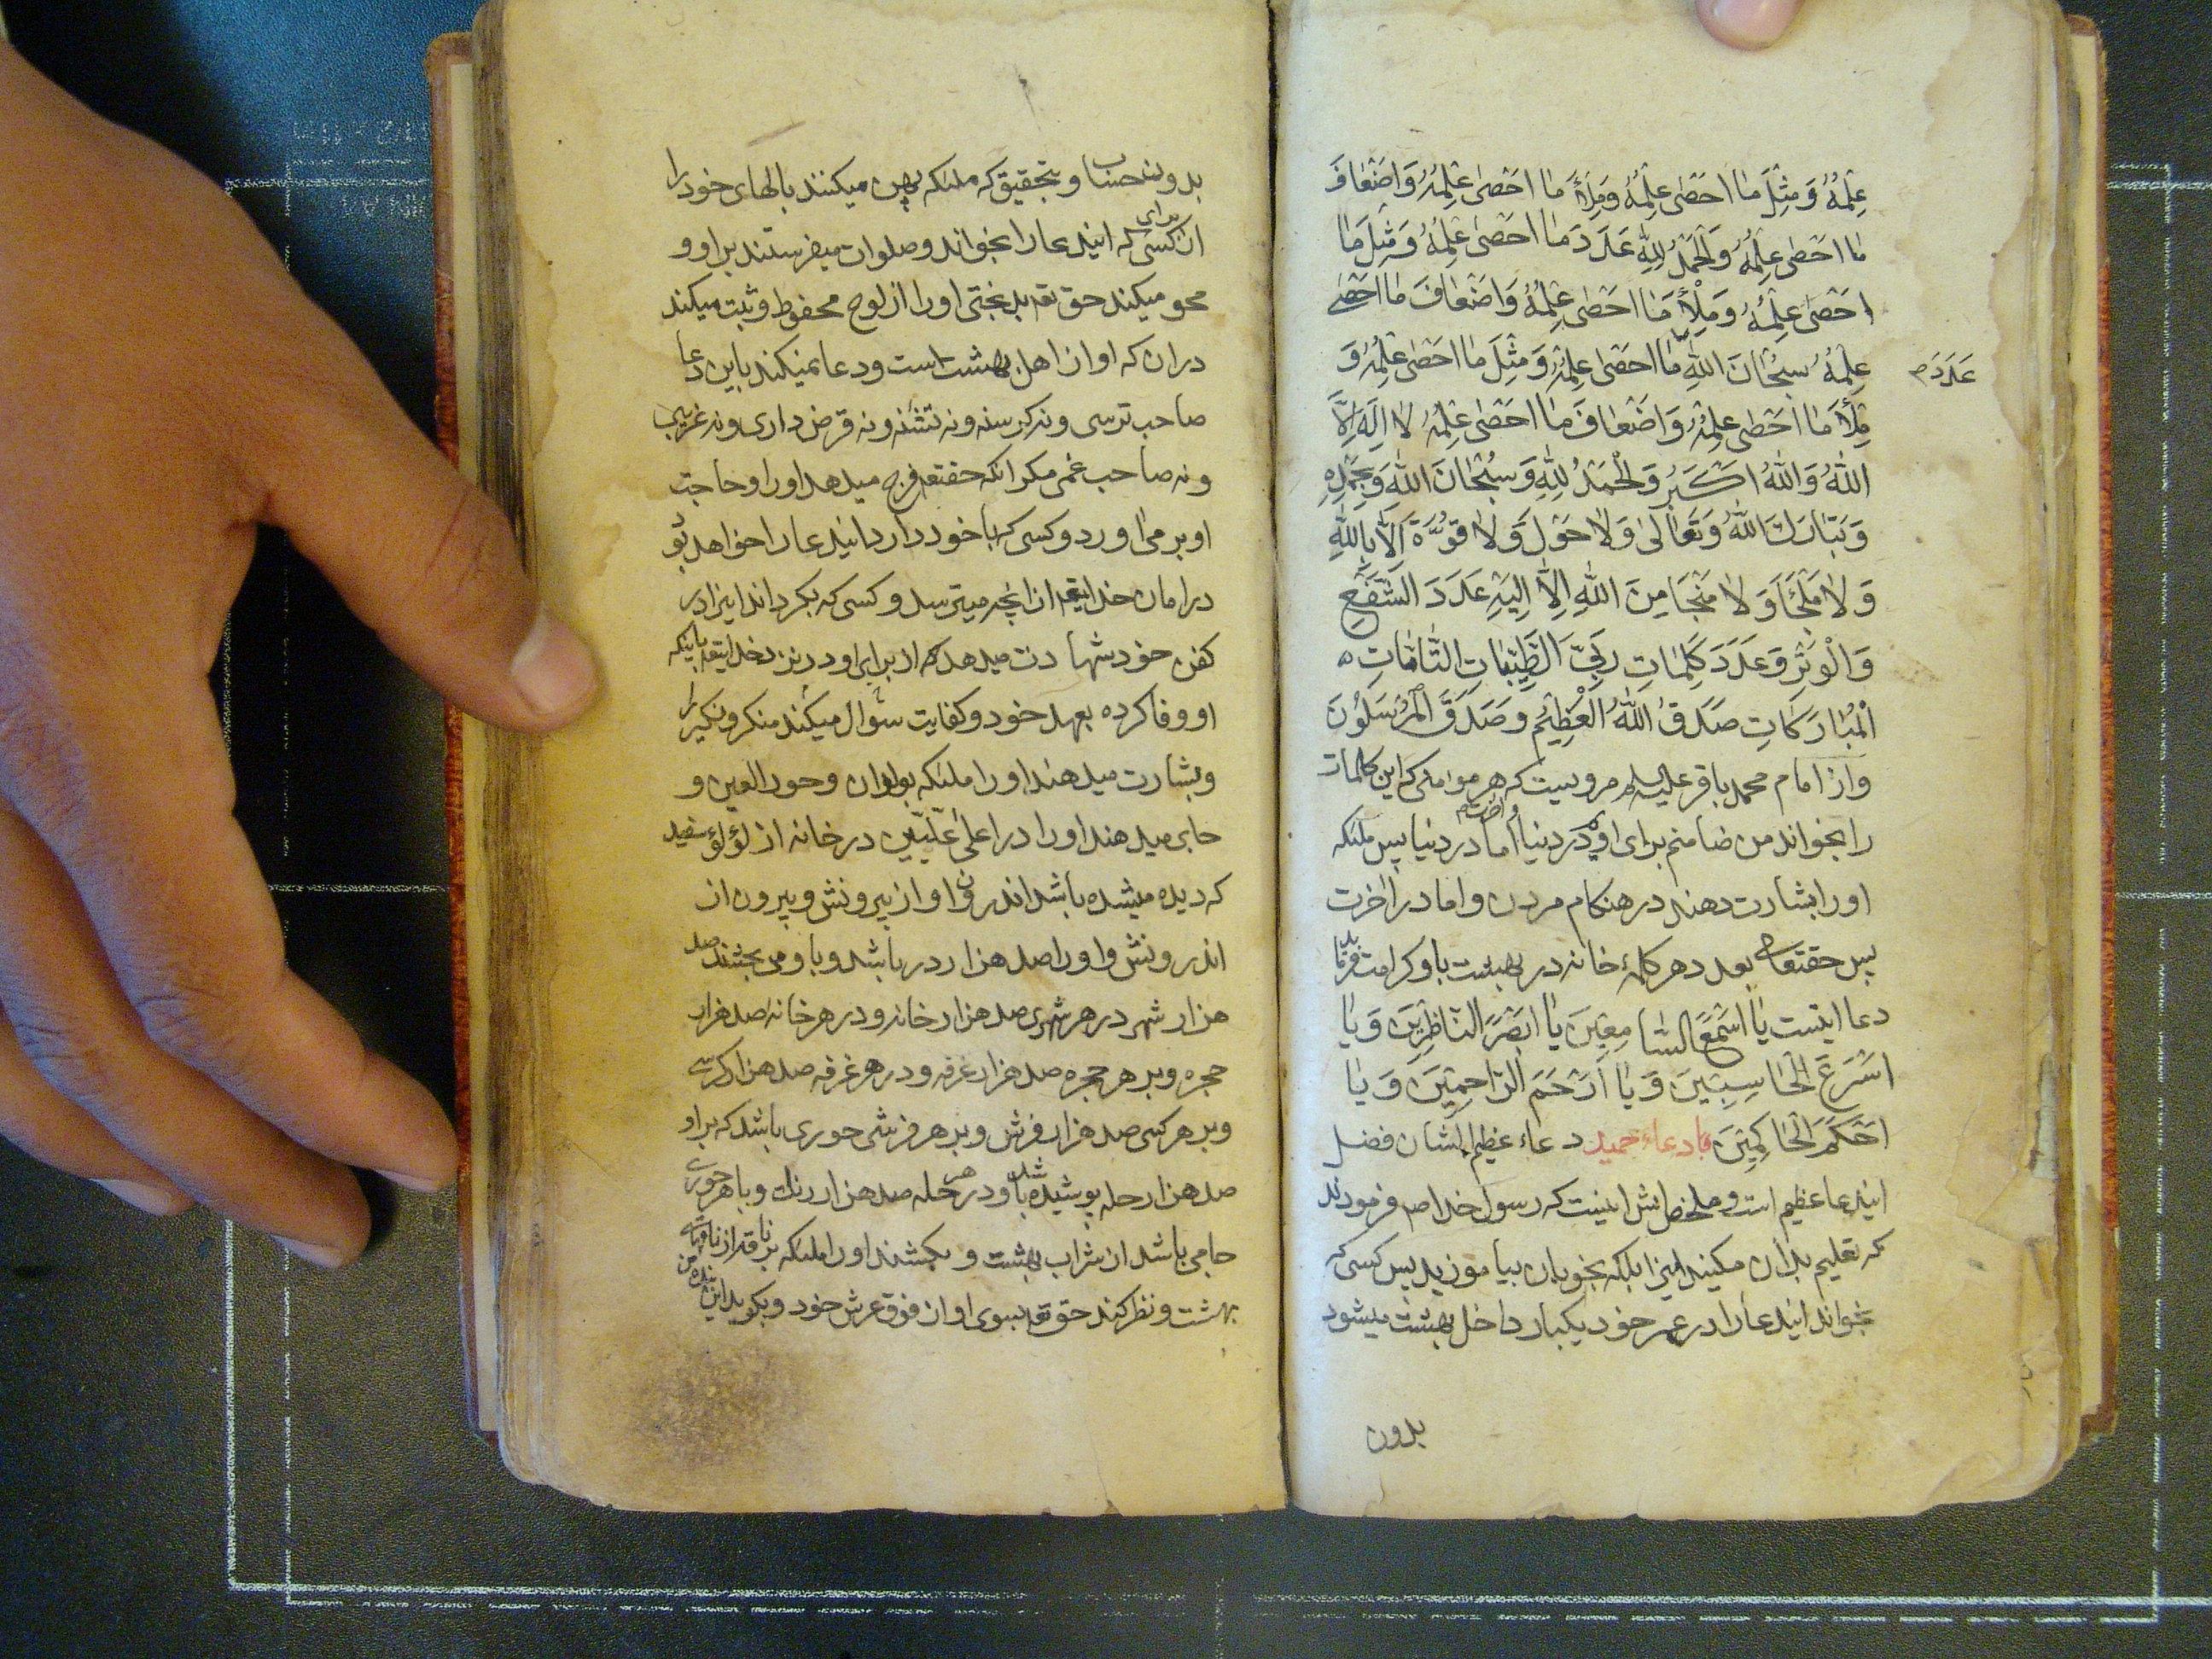 عِلْمُهُ وَمِثْلَ مٰا اَحْصٰى عِلْمُهُ وَمِلْأَ مٰا اَحْصٰى عِلْمُهُ وَاَضْعٰافَ
مٰا اَحْصٰى عِلْمُهُ وَالْحَمْدُ لِلّٰهِ عَدَدَ مٰا اَحْصٰى عِلْمُهُ وَمِثْلَ مٰا
اَحْصٰى عِلْمُهُ وَمِلْأَ مٰا اَحْصٰى عِلْمُهُ وَاَضْعٰافَ مٰا اَحْصٰى
عِلْمُهُ سُبْحٰانَ اللّٰهِ مٰا اَحْصٰى عِلْمُهُ وَمِثْلَ مٰا اَحْصٰى عِلْمُهُ وَ
عَدَدَ
مِلْأَ مٰا اَحْصٰى عِلْمُهُ وَاَضْعٰافَ مٰا اَحْصٰى عِلْمُهُ لٰا اِلٰهَ اِلَّا
اللّٰهُ وَاللّٰهُ اَكْبَرُ وَالْحَمْدُ لِلّٰهِ وَسُبْحٰانَ اللّٰهِ وَبِحَمْدِهِ
وَتَبٰارَكَ اللّٰهُ وَتَعٰالٰى وَلٰا حَوْلَ وَلٰا قُوَّةَ اِلَّا بِاللّٰهِ
وَلٰا مَلْجَأَ وَلٰا مَنْجَا مِنَ اللّٰهِ اِلَّا اِلَيْهِ عَدَدَ الشَّفْعِ
وَالْوَتْرِ وَعَدَدَ كَلِمٰاتِ رَبِّيَ الطَّيِّبٰاتِ التَّامّٰاتِ
الْمُبٰارَكٰاتِ صَدَقَ اللّٰهُ الْعَظِيْمُ وَصَدَقَ الْمُرْسَلُوْنَ
واز امام محمد باقر عليه السلم مرويست كه هر مؤمنى كه اين كلمات
را بخواند من ضامنم براى او در دنيا و اخرت اما در دنيا پس ملئكه
اورا بشارت دهند در هنكام مردن و اما در اخرت
پس حقتعالى بعدد هر كلمهٔ خانه در بهشت باو كرامت فرمايد
دعا اينست يٰا اَسْمَعَ السّٰامِعِيْنَ يٰا اَبْصَرَ النّٰاظِرِيْنَ وَيٰا
اَسْرَعَ الْحٰاسِبِيْنَ وَيٰا اَرْحَمَ الرّٰاحِمِيْنَ وَيٰا
اَحْكَمَ الْحٰاكِمِيْنَ دعاء عظيم الشان فضل
ايندعا عظيم است و ملخصش اينست كه رسول خدا ص فرمودند
كه تعليم بدان مكنيد اينرا بلكه بخوبان بياموزيد پس كسى كه
بخواند ايندعا را در عمر خود يكبار داخل بهشت ميشود
بدون
بدون حساب و بتحقيق كه ملئكه پهن ميكنند بالهاى خود را
براى
ان كسى كه ايندعا را بخواند و صلوات ميفرستند بر او و
محو ميكند حق تعه بدبختى او را از لوح محفوظ و ثبت ميكند
در ان كه او از اهل بهشت است و دعا نميكند باين دعا
صاحب ترسى و نه كرسنه و نه تشنه و نه قرض دارى و نه غريبى
و نه صاحب غمى مكر انكه حقتعه فرج ميدهد او را و حاجت
او بر مى اورد و كسى كه با خود دارد ايندعا را خواهد بود
در امان خدايتعه از انچه ميترسد و كسى كه بكرداند اينرا در
كفن خود شهادت ميدهد كه از براى او در نزد خدايتعه باينكه
او وفا كرده بعهد خود و كفايت سؤال ميكند منكر و نكير را
و بشارت ميدهند او را ملئكه بولدان و حور العين و
جاى ميدهند او را در اعلى علّيّين در خانه از لؤلؤ سفيد
كه ديده ميشده باشد اندرون او از بيرونش و بيرون از
اندرونش و او را صد هزار در باشد و باو مى بخشند صد
هزار شهر در هر شهرى صد هزار خانه و در هر خانه صد هزار
حجره و در هر حجره صد هزار غرفه و در هر غرفه صد هزار كرسى
و بر هر كرسى صد هزار فرش و بر هر فرشى حورى باشد كه بر او
صد هزار حله پوشيده باشد و در هر حله صد هزار رنك و با هر حورى
جامى باشد از شراب بهشت و بكشند او را ملئكه بر ناقه از ناقهاى
بهشت و نظر كند حق تعه بسوى او از فوق عرش خود و بكويد اين بنده من